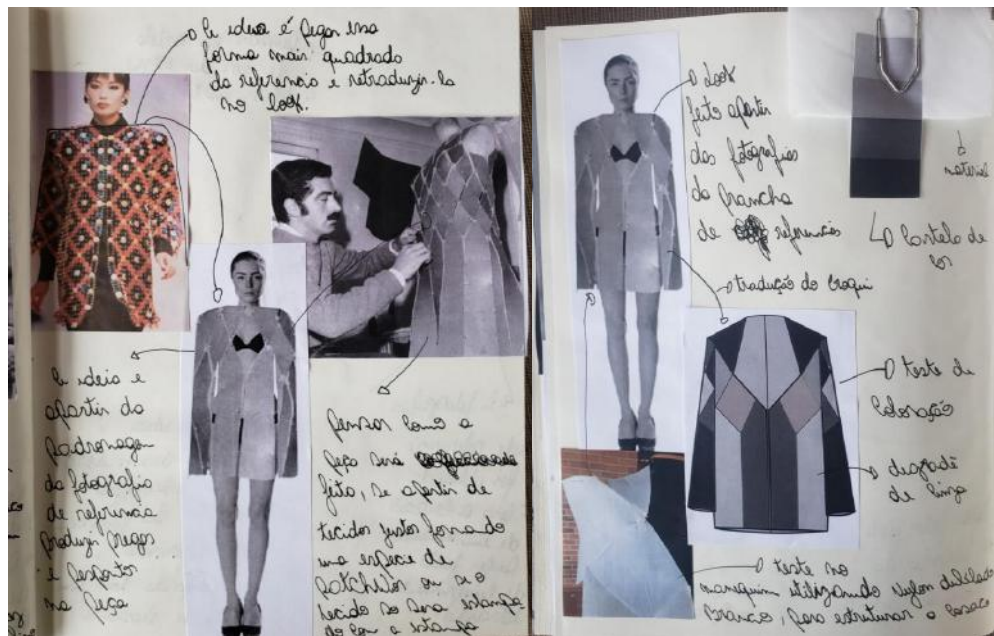 A ideia é pegar essa
forma mais quadrado
da referencia e retraduzir-la
no look.
A ideia e
apartir da
padronagem
da fotografia
de referencia
produzir pregas
e pespontos
na peça
pensar como a
peça será
feita, se apartir de
tecidos justos formando
uma espece de
ou se o
tecido so sera estampa
do com a estampa
look
feito apartir
das fotografias
da prancha
de referencias
material
Cartela de
cor
tradução do croqui
teste de
coloração
degradê
de cinza
teste no
manequim utilizando nylon dublado
branco, para estruturar o casaco